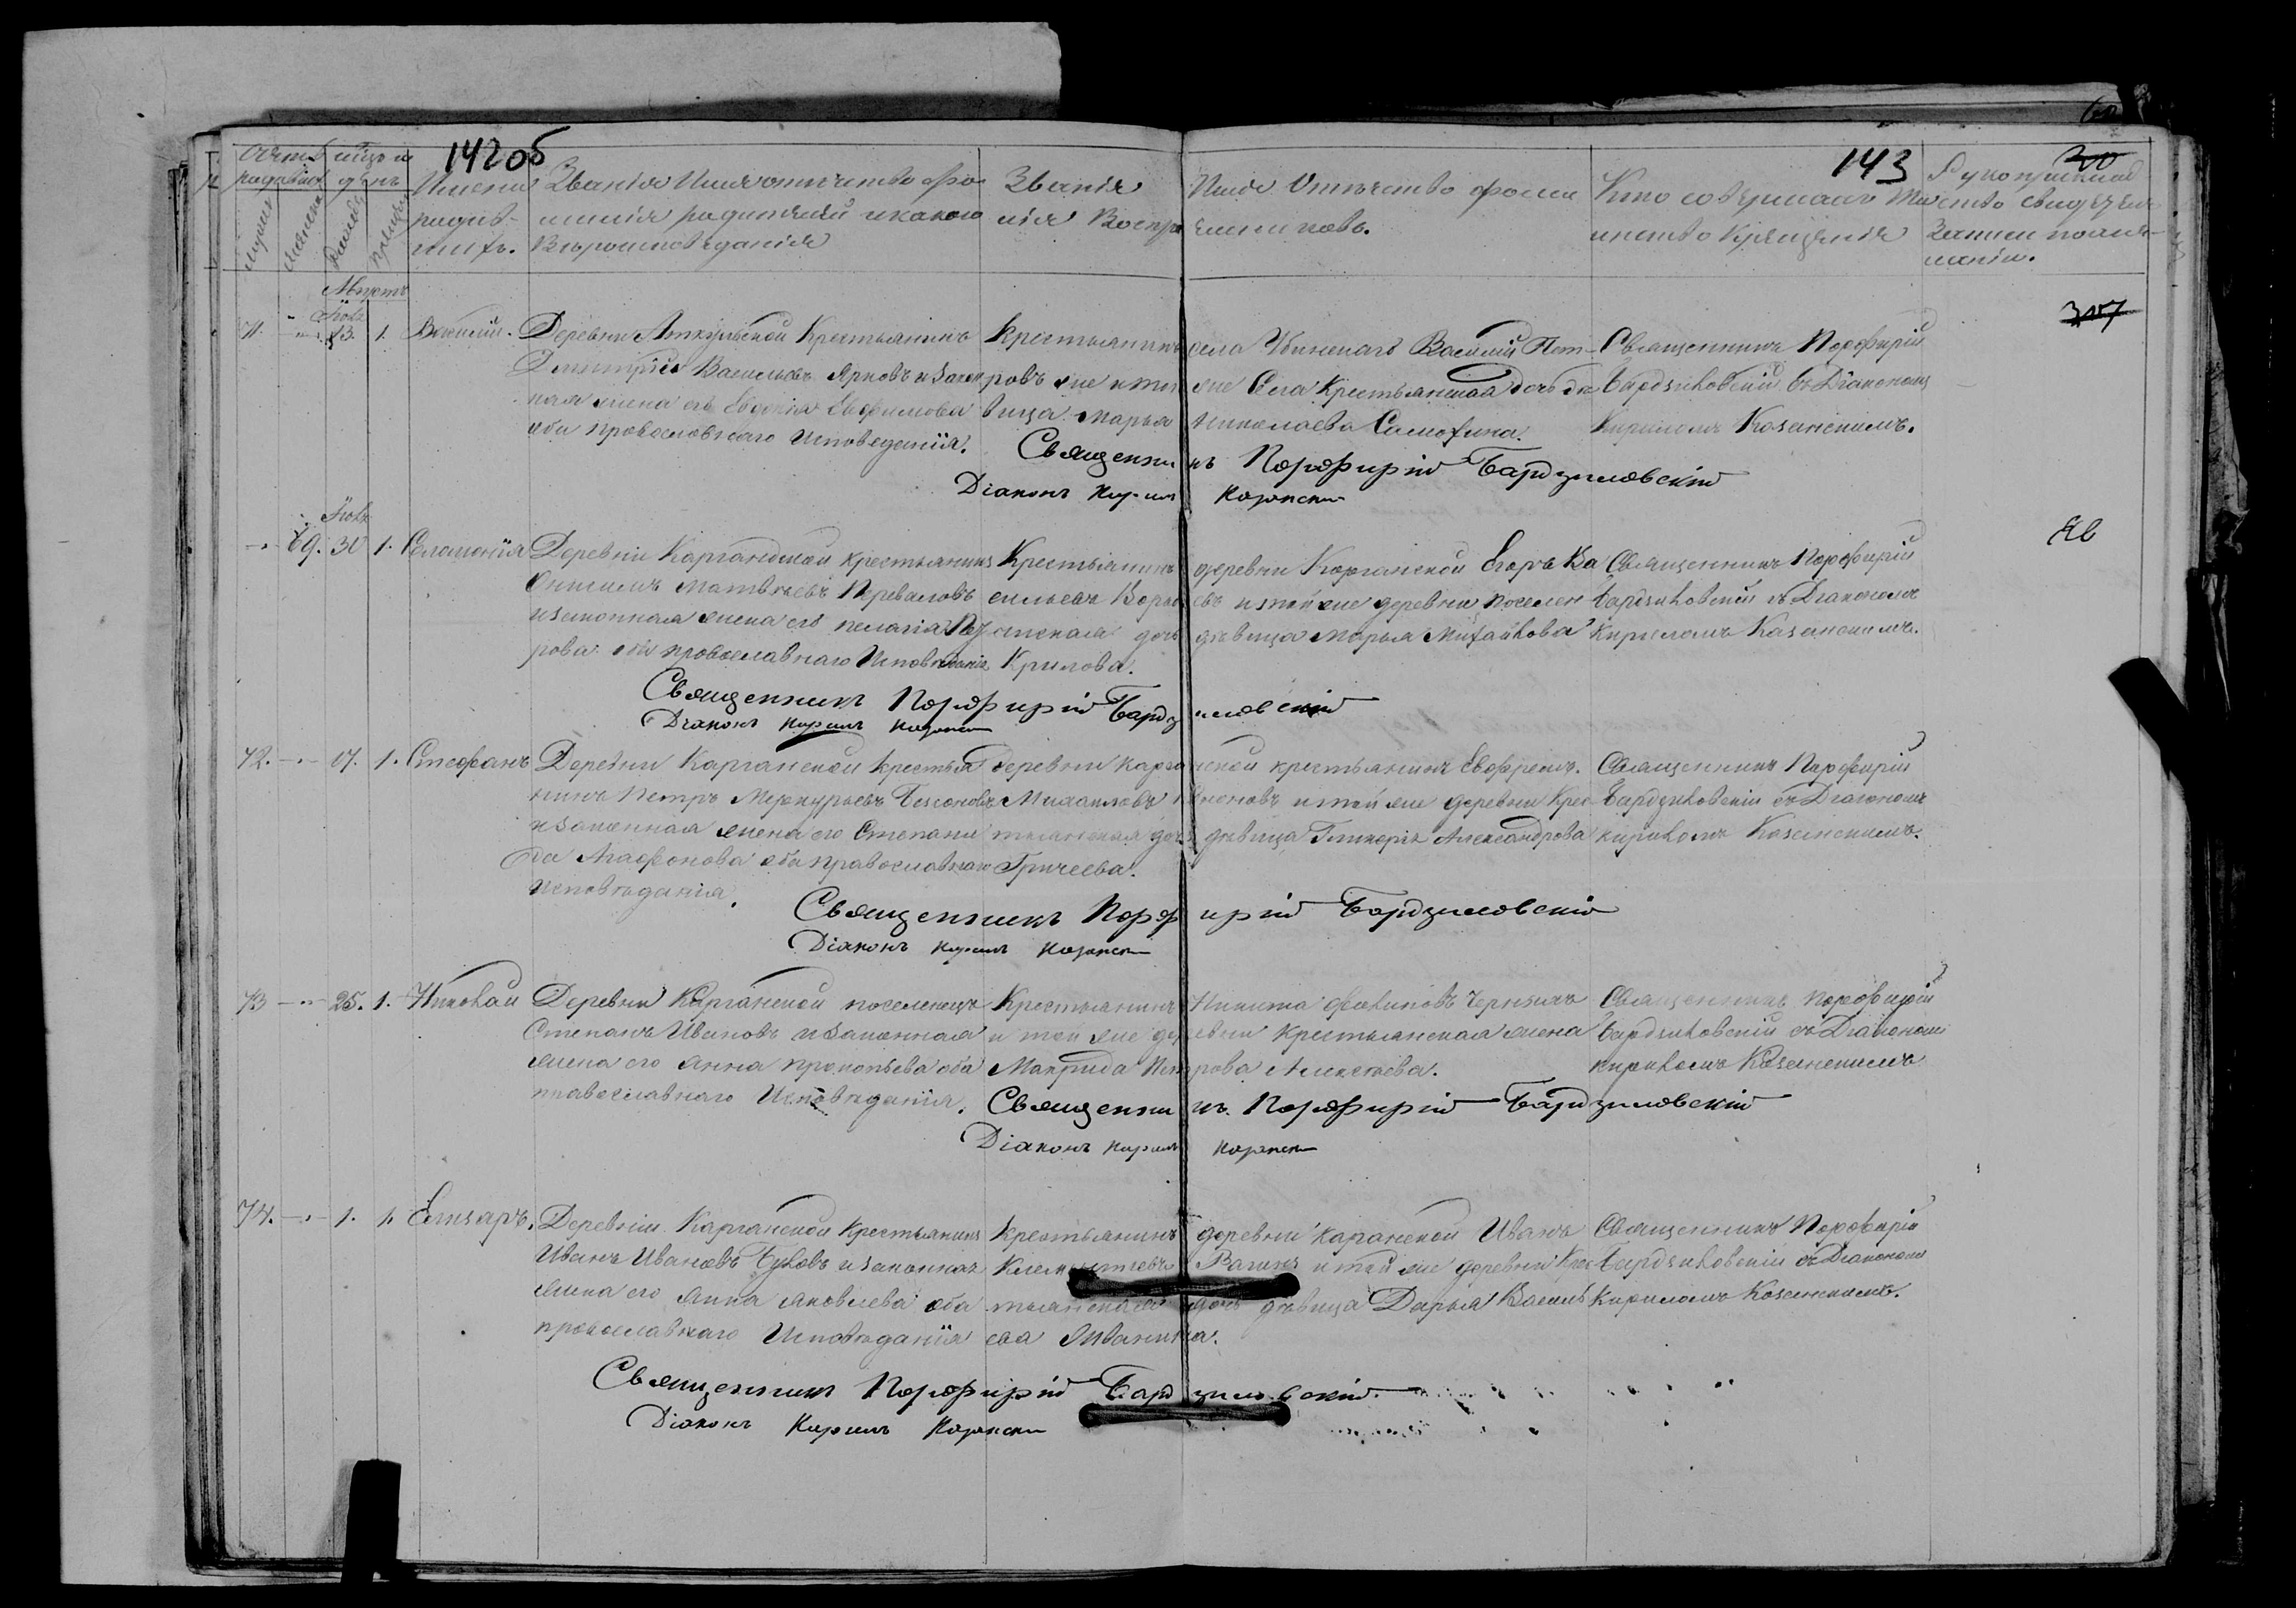 142об
143
Счетъ
мѣсяцъ и
родившихся
день
мужеска
женска
рожденія
крещенія
Имена
родив-
шихъ.
Званія Имя отчество фа
милія родителей и какого
Вѣроисповѣданія
Званія Имя Отчество фами
лія Воспріемниковъ.
Кто совершалъ Таи
инство Крещенія
Рукоприклад
ство свидѣтелей
Записи по жела-
нію.
Августъ
71. 13. 1. Василій. Деревни Аткульской Крестьянинъ
Димитрій Васильевъ Ярковъ и закон
ная жена его Евдокія Евфимова
оба провославнаго Исповеданія.
Крестьянинъ села Убинскаго Василій Пет-
ровъ же и той же Села Крестьянская дочь дѣ
вица Марья Николаева Самохина.
Священникъ Порфирій
Бардзиловскій съ Діакономъ
Кириломъ Казанскимъ.
Священникъ Порфирій Бардзиловскій
Діаконъ Кирилъ Казански
69. 30 1. Соломонія Деревни Карганской крестьянинъ
Онисимъ Матвѣевъ Переваловъ
и законная жена его пелагія
рова оба провославнаго Исповѣданія
Крестьянинъ деревни Карганской Егоръ Ва
сильевъ и той же деревни поселен
ческая дочь дѣвица Марья Михайлова
Крилова.
Священникъ Порфирій
Бардзиловскій съ Діакономъ
Кириломъ Казанскимъ.
Священникъ Порфирій Бардзиловскій
Діаконъ Кирилъ Казански
72. 17. 1. Стефанъ Деревни Карганской Крестья
нинъ Петръ Меркурьевъ Безсоновъ
и законная жена его Степани
да Агафонова оба православнаго
Исповѣданія.
деревни Карганской крестьянинъ Евфремъ.
Михаиловъ и той же деревни Крес
тьянская дочь дѣвица Гликерія Александрова
Гричеева.
Священникъ Порфирій
Бардзиловскій съ Діакономъ
Кириломъ Казанскимъ.
Священникъ Порфирій Бардзиловскій
Діаконъ Кирилъ Казански
73 25. 1. Николай Деревни Карганской поселенецъ
Степанъ Ивановъ и законная
жена его Анна прокопьева оба
православнаго Исповѣданія.
Крестьянинъ Никита Филиповъ
и той же деревни крестьянская жена
Макрида Петрова Алексѣева.
Священникъ Порфирій
Бардзиловскій съ Діакономъ
Кириломъ Казанскимъ
Священникъ Порфирій Бардзиловскій
Діаконъ Кирилъ Казански
74. 1. 1. Елизаръ. Деревни Карганской Крестьянинъ
Иванъ Ивановъ Буковъ и законная
жена его Анна Яковлева оба
провославнаго Исповѣданія
Крестьянинъ деревни Карганской Иванъ
Клементьевъ и той же деревни Крес
тьянская дочь дѣвица Дарья Василь
ева
Священникъ Порфирій
Бардзиловскій съ Діакономъ
Кириломъ Казанскимъ.
Священникъ Порфирій Бардзиловскій.
Діаконъ Кирилъ Казански